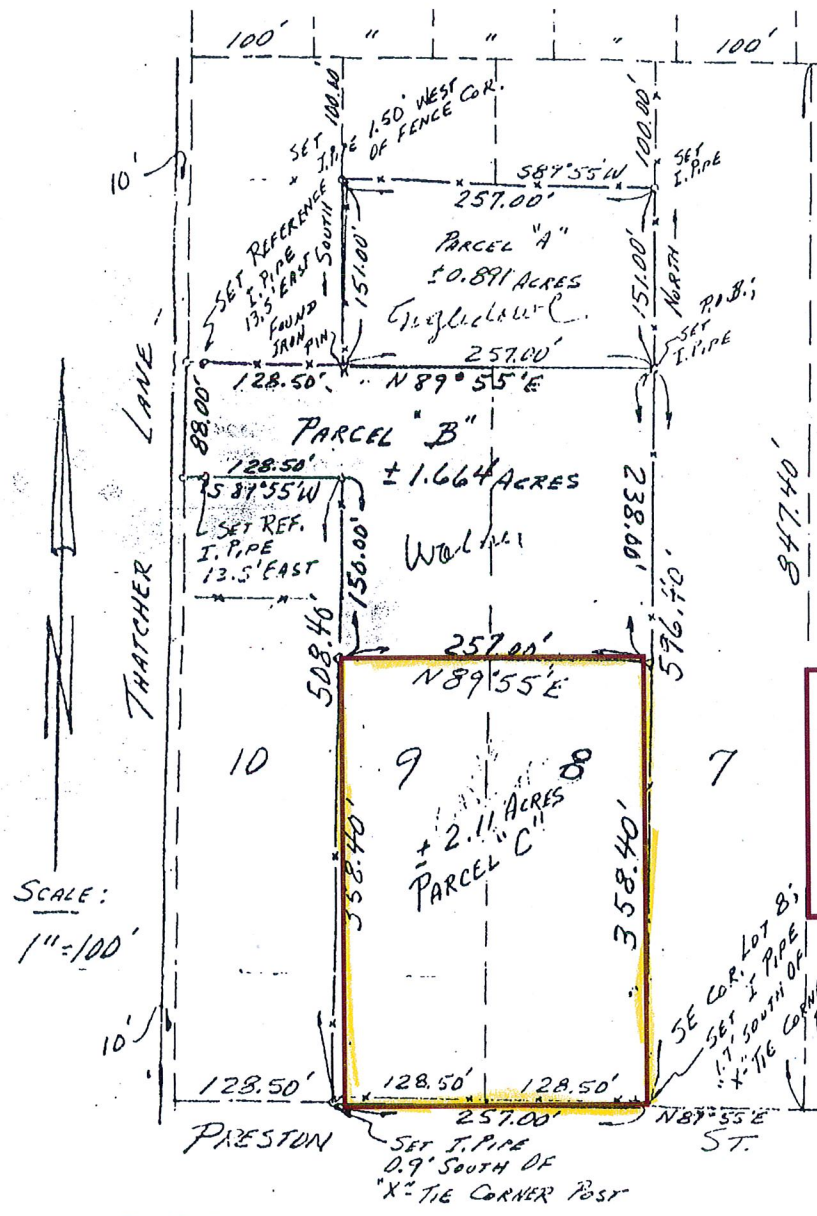 100' " " " 100'
100.00'
100.00'
SET
I.PIPE 1.50' WEST
OF FENCE COR.
SET
I.PIPE
10'
S89°55'W
257.00'
SET REFERENCE
I.PIPE
13.5' EAST
SOUTH
151.00'
PARCEL "A"
±0.891 ACRES
151.00'
NORTH
P.O.B.;
SET
I.PIPE
FOUND
IRON
PIN
257.00'
128.50'
N89°55'E
LANE
88.00'
PARCEL "B"
±1.664 ACRES
128.50'
S89°55'W
SET REF.
I.PIPE
13.5' EAST
150.00'
238.00'
847.40'
THATCHER
508.40'
596.40'
257.00'
N89°55'E
N
10
9
8
7
±2.11 ACRES
PARCEL "C"
358.40'
358.40'
SCALE:
1"=100'
10'
SE COR. LOT 8;
SET I PIPE
1.7' SOUTH OF
"X"-TIE
128.50'
128.50'
128.50'
257.00'
N89°55'E
PRESTON
ST.
SET I.PIPE
0.9' SOUTH OF
"X"-TIE CORNER POST